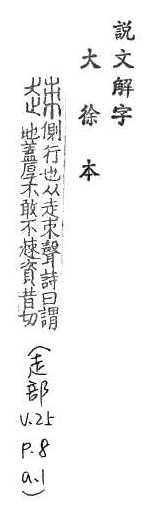 説文解字
大徐本
趚
側行也从走朿聲詩曰謂
地蓋厚不敢不趚資昔切
(走部 v.25 p.8 a.1)